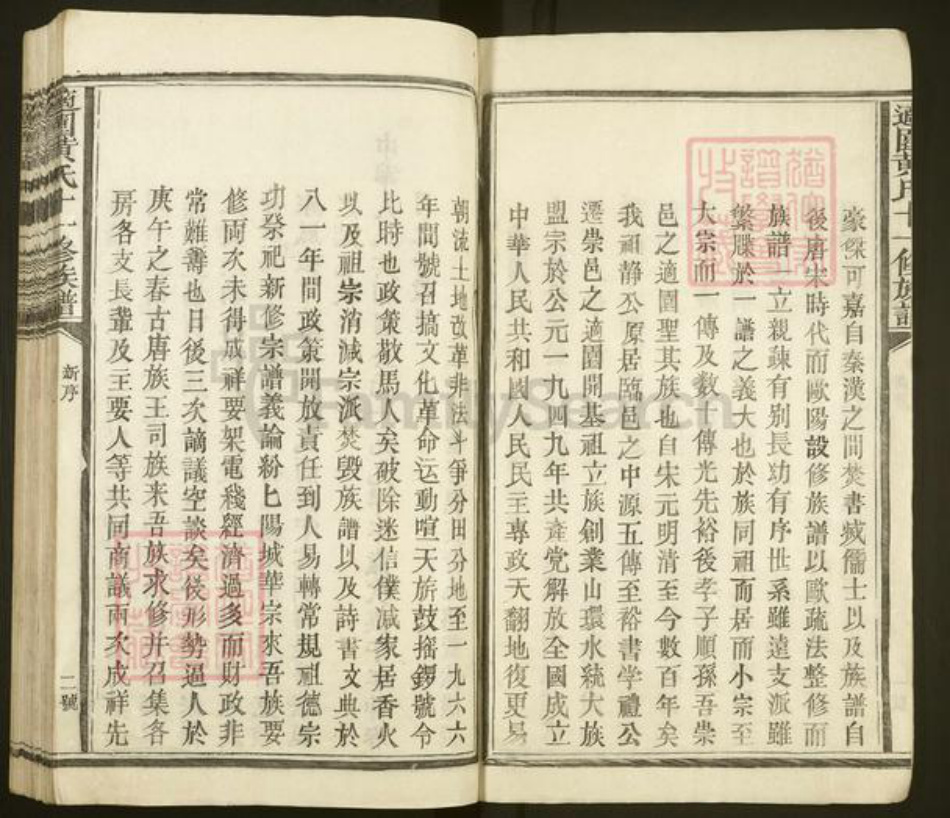 適園黃氏十一修族譜
豪傑可嘉自秦漢之間焚書城儒士以及族譜自
後唐宋時代而歐陽設修族譜以歐疏法整修而
族譜一立親疎有別長幼有序世系雖遠支派雖
繁牒於一譜之義大也於族同祖而居而小宗至
大宗而一傳及数十傳光先裕後孝子順孫吾崇
邑之適園聖其族也自宋元明清至今數百年矣
我祖静公原居臨邑之中源五傳至裕書学禮公
遷崇邑之適園開基祖立族創業山環水統大族
盟宗於公元一九四九年共產党解放全國成立
中華人民共和國人民民主專政天翻地復更易
朝流土地改革非法斗爭分田分地至一九六六
年間號召搞文化革命运動喧天旂鼓摇鑼號令
比時也政策散馬人矣破除迷信僕减家居香火
以及祖宗消減宗派焚毀族譜以及詩書文典於
八一年間政策開放責任到人易轉常規祖德宗
功祭祀新修宗譜義論紛匕陽城華宗來吾族要
修両次未得成祥要架電綫經濟過多而財政非
常難籌也日後三次謫議空談矣後形勢逼人於
庚午之春古唐族王司族来吾族求修并召集各
房各支長輩及主要人等共同商議両次成祥先
適園黃氏十一修族譜
新序
二號
FamilySearch